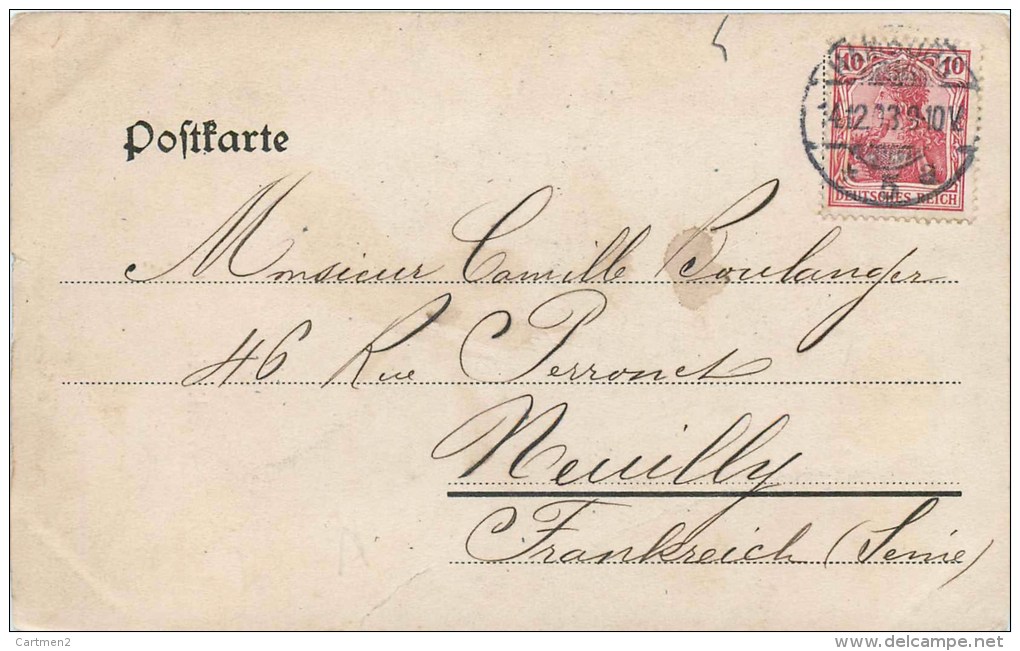 Postkarte
10 10
14.12.03.9-10V.
* 5 a
DEUTSCHES REICH
Monsieur Camille Boulanger
46 Rue Perronet
Neuilly
Frankreich (Seine)
Cartmen2
www.delcampe.net